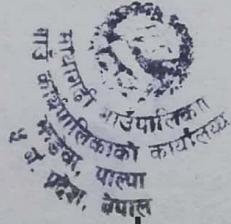 माथागढी गाउँपालिका
गाउँ कार्यपालिकाको कार्यालय
झडेवा, पाल्पा
प्रदेश, नेपाल